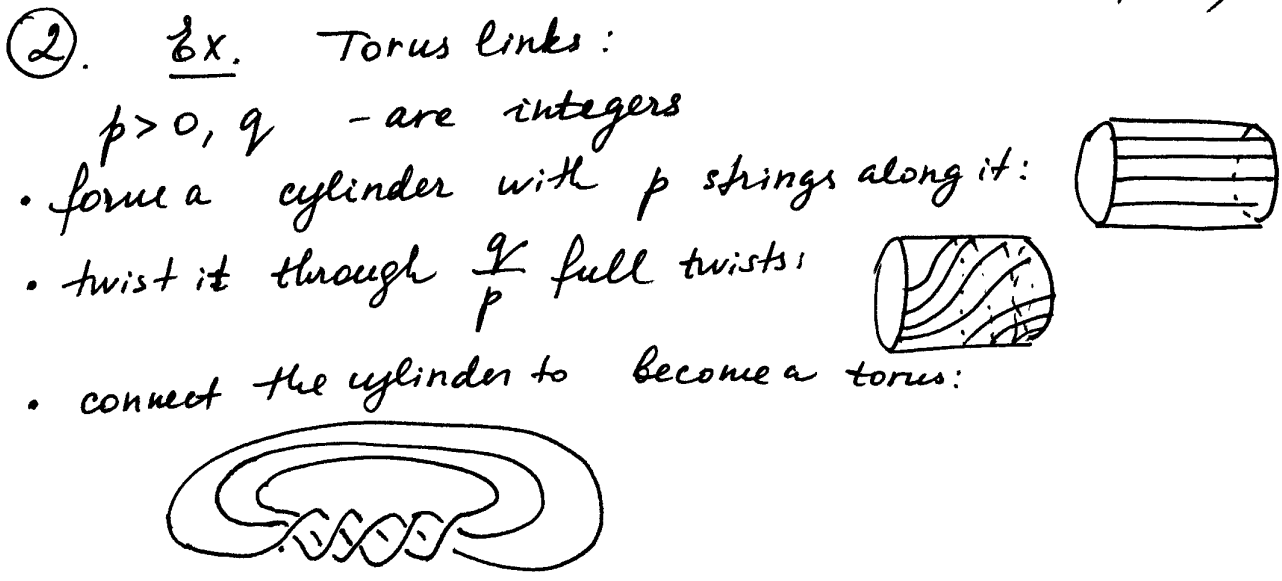 ②. Ex. Torus links:
p > 0, q - are integers
• form a cylinder with p strings along it:
• twist it through q/p full twists:
• connect the cylinder to become a torus: